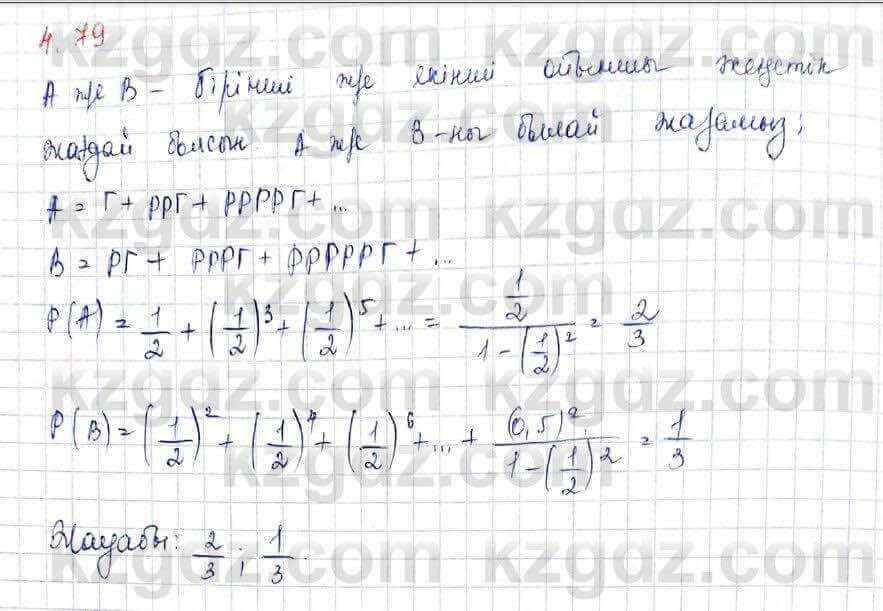 4.79
A және B – бірінші және екінші ойыншы жеңетін
жағдай болсын. A және B-ны былай жазамыз:
A = Г + РРГ + РРРРГ + ...
B = РГ + РРРГ + РРРРРГ + ...
P(A) = 1/2 + (1/2)^3 + (1/2)^5 + ... = (1/2)/(1-(1/2)^2) = 2/3
P(B) = (1/2)^2 + (1/2)^4 + (1/2)^6 + ... + (0,5)^2/(1-(1/2)^2) = 1/3
Жауабы: 2/3; 1/3.
kzgdz.com